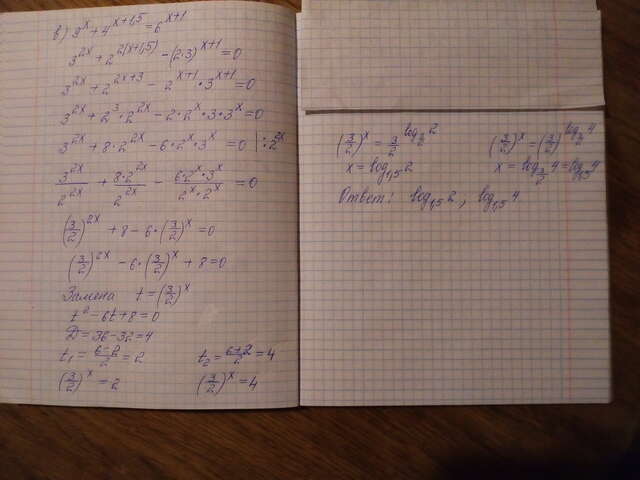 в) 9^x + 4^{x+1,5} = 6^{x+1}
3^{2x} + 2^{2(x+1,5)} - (2·3)^{x+1} = 0
3^{2x} + 2^{2x+3} - 2^{x+1} · 3^{x+1} = 0
3^{2x} + 2^3 · 2^{2x} - 2 · 2^x · 3 · 3^x = 0
3^{2x} + 8 · 2^{2x} - 6 · 2^x · 3^x = 0 | : 2^{2x}
3^{2x}/2^{2x} + 8·2^{2x}/2^{2x} - 6·2^x·3^x/2^x·2^x = 0
(3/2)^{2x} + 8 - 6 · (3/2)^x = 0
(3/2)^{2x} - 6 · (3/2)^x + 8 = 0
Замена t = (3/2)^x
t^2 - 6t + 8 = 0
D = 36 - 32 = 4
t_1 = (6-2)/2 = 2 t_2 = (6+2)/2 = 4
(3/2)^x = 2 (3/2)^x = 4
(3/2)^x = 3/2^{log_{3/2} 2} (3/2)^x = (3/2)^{log_{3/2} 4}
x = log_{1,5} 2 x = log_{3/2} 4 = log_{1,5} 4
Ответ: log_{1,5} 2 ; log_{1,5} 4.